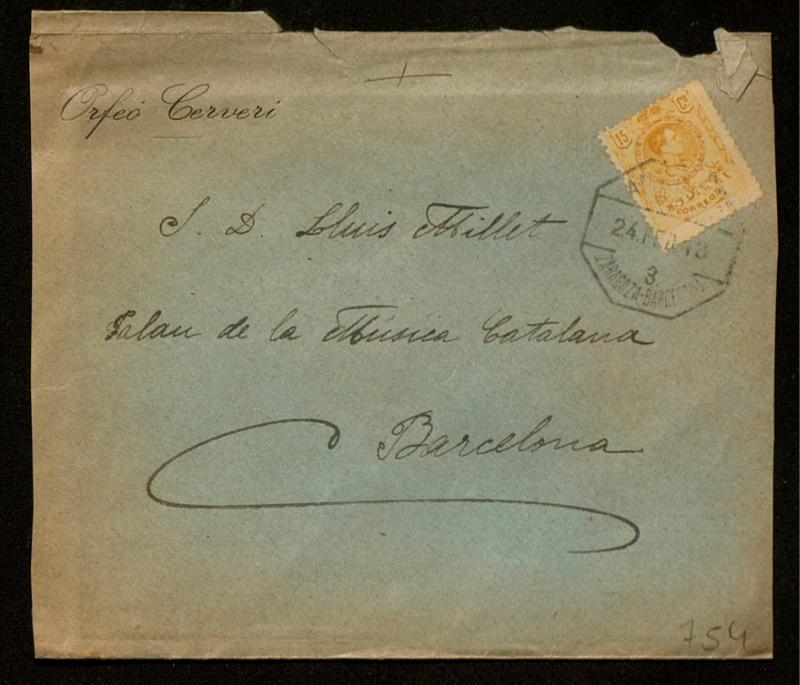 Orfeó Cerverí
15 Cs
CORREOS
24.FEB.13
3.
ZARAGOZA-BARCELONA
S. D. Lluis Millet
Palau de la Música Catalana
Barcelona
754